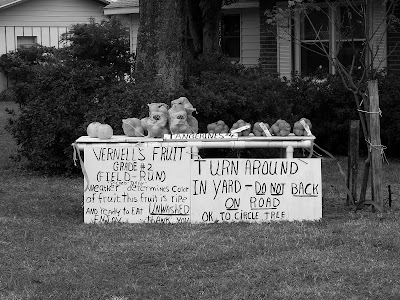 TANGERINES
VERNELL'S FRUIT
GRADE #2
(FIELD-RUN)
WEATHER determines Color
of fruit. This fruit is ripe
And ready to EAT UNWASHED
ENJOY THANK YOU
TURN AROUND
IN YARD - DO NOT BACK
ON ROAD
OK TO CIRCLE TREE